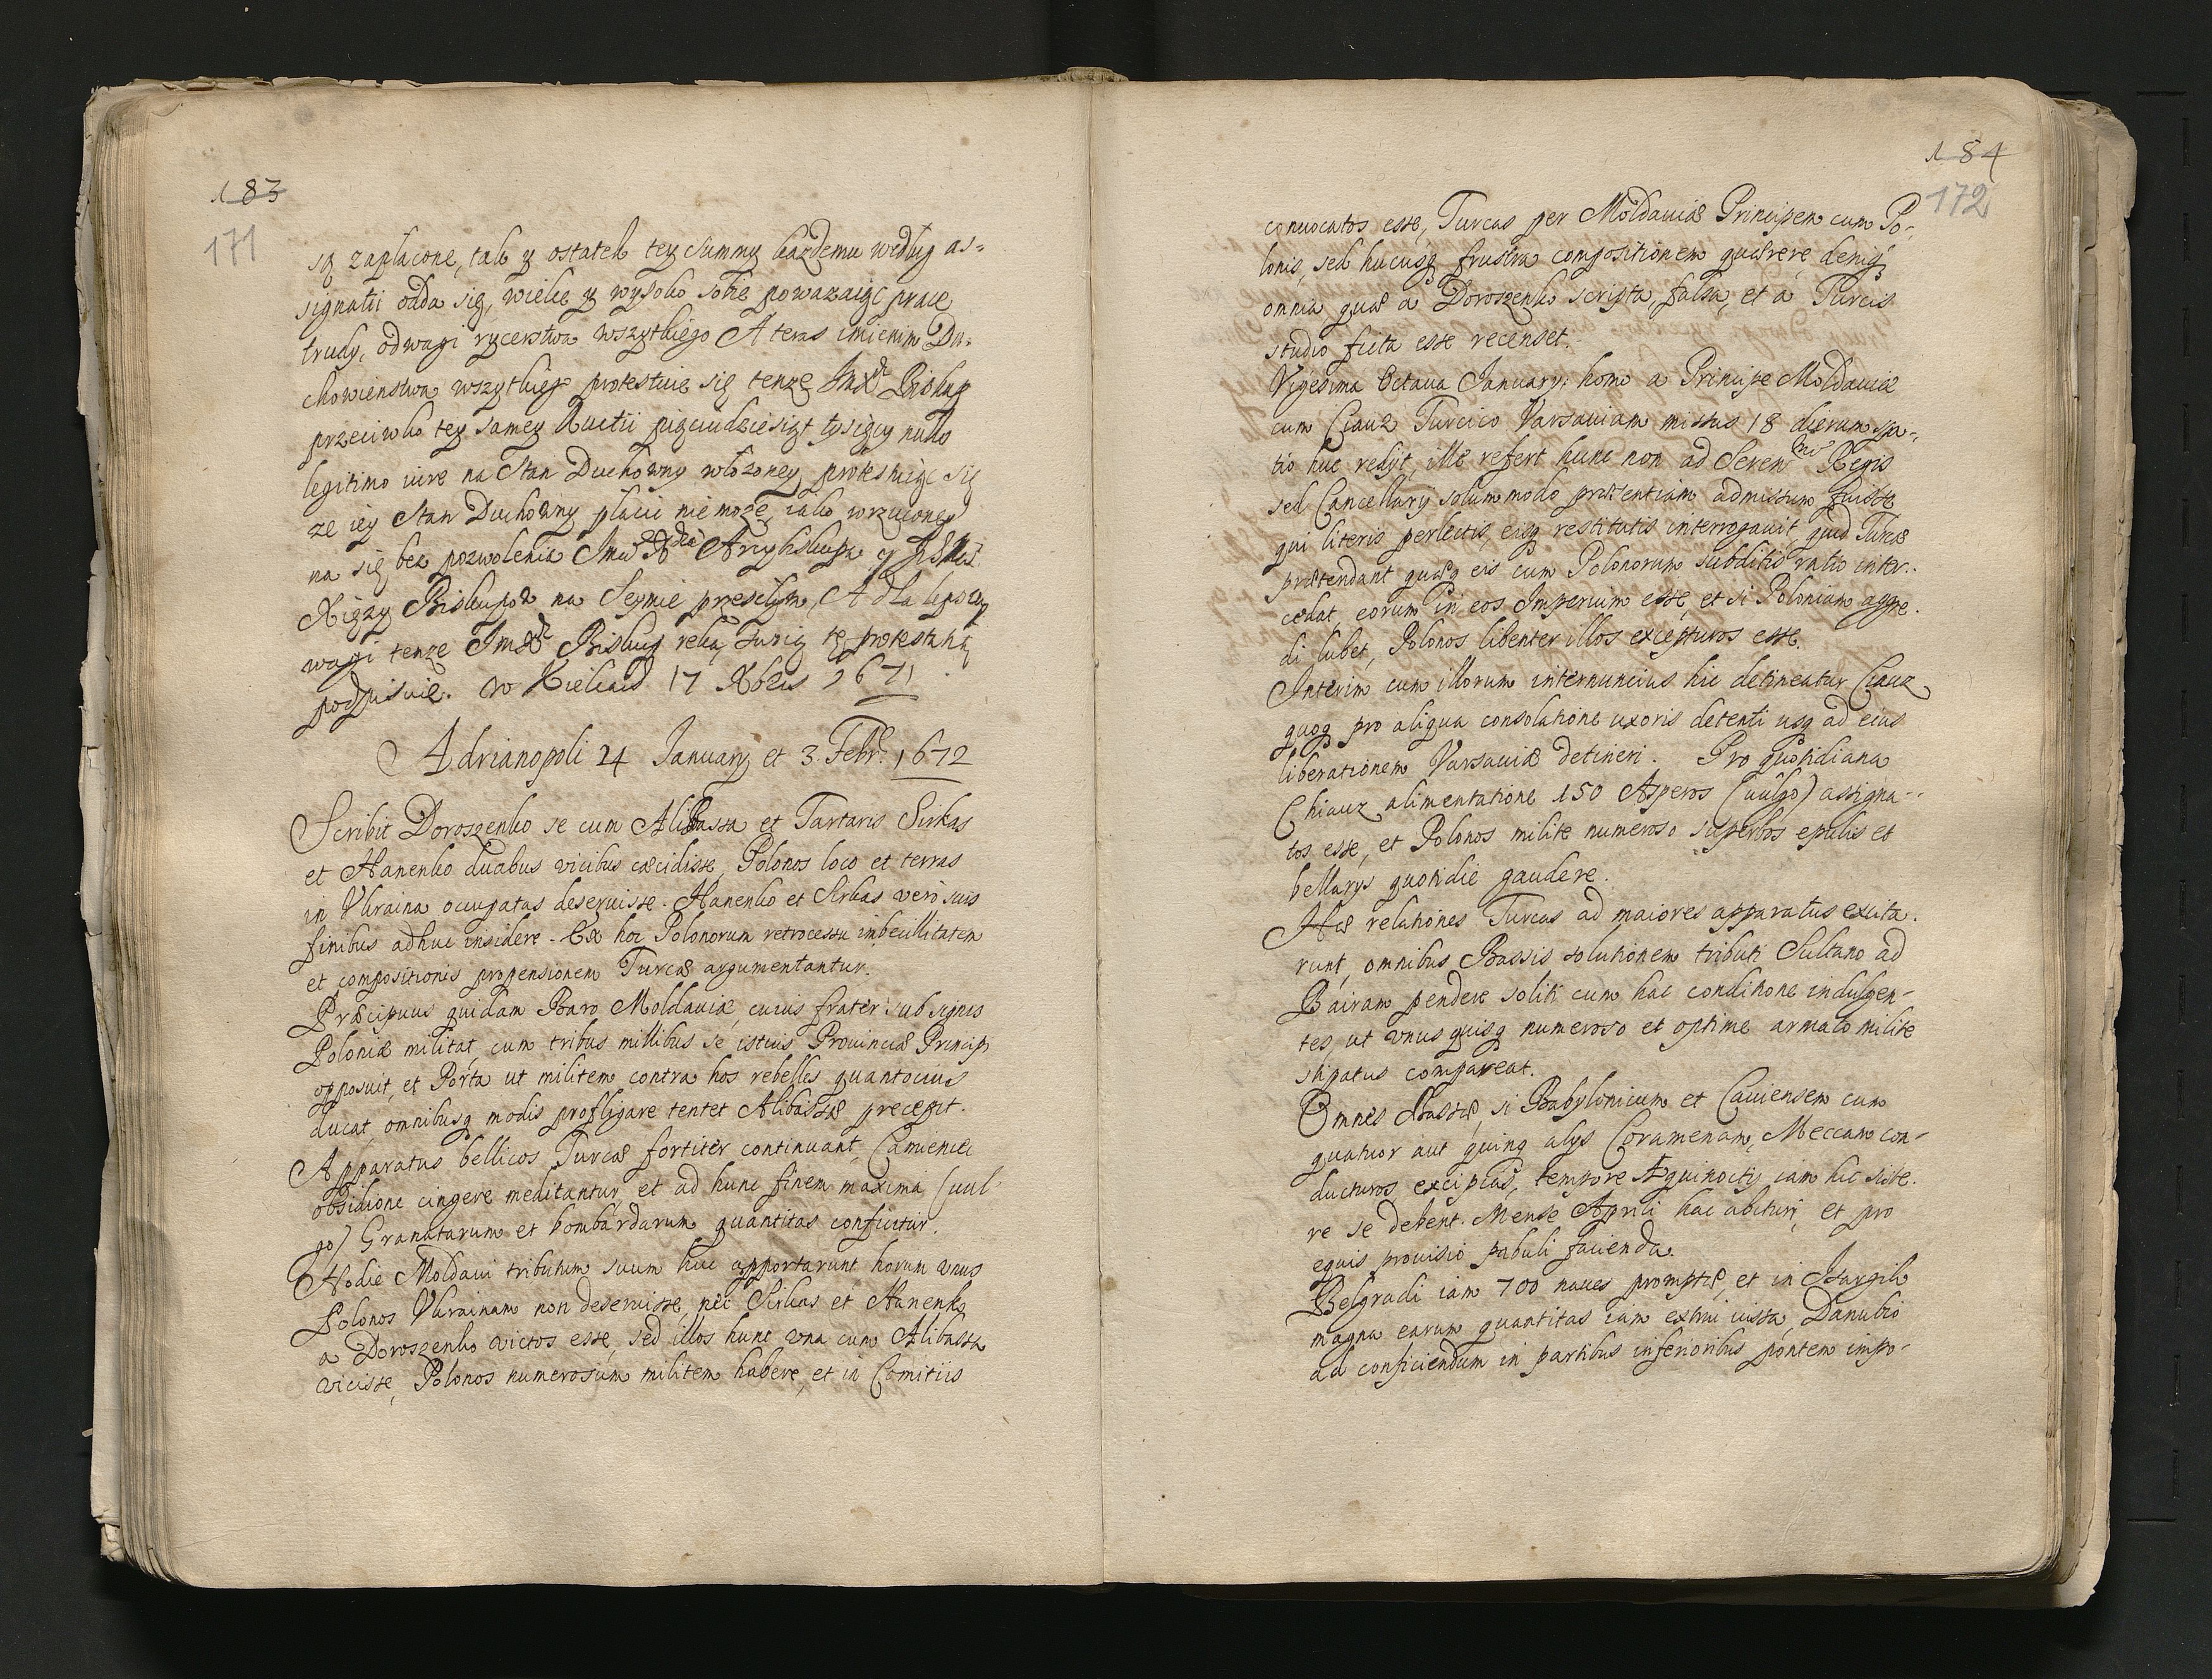 183
171
są zapłacone, tak y ostatek tey Summy kazdemu według as-
signatii odda się, wielce y wysoko sobie powazaiąc prace
trudy, odwagi rycerstwa wszytkiego A teras imieniem Du-
chowienstwa wszytkiego protestuie się tenze Imx Biskup
przeciwko tey samey Auctii pięciudziesiąt tysięcy nullo
legitimo iure na Stan Duchowny włozoney, protestuiąc się
ze iey Stan Duchowny płacic nie moze, iako wrzuconey
na się bez pozwolenia Arcybiskupa y
Xięzy Biskupow na Seymie przeszłym, A dla lepszey
wagi tenze Imx Biskup ręką swoią tę protestatią
podpisuie. w Kielcach 17 Xbris 1671
Adrianopoli 24 January et 3. Febr. 1672
Scribit Doroszenko se cum Alibassa et Tartaris Sirkas
et Hanenko duabus vicibus cæcidisse, Polonos loco et terras
in Vkraina occupatas deseruisse. Hanenko et Sirkas verò suis
finibus adhuc insidere. Ex hoc Polonorum retrocessu imbecillitatem
et compositionis propensionem Turcæ argumentantur.
Præcipuus quidam Baro Moldaviæ, cuius frater sub signis
Poloniæ militat, cum tribus millibus se istius Provinciæ Principi
opposuit, et Porta ut militem contra hos rebelles quantocius
ducat, omnibusq modis profligare tentet Alibassæ precepit.
Apparatus bellicos Turcæ fortiter continuant, Camienici
obsidione cingere meditantur, et ad hunc finem maxima (vul-
go) Granatarum et bombardarum quantitas conficitur.
Hodie Moldavi tributum suum huc apportarunt horum vnus
Polonos Vkrainam non deseruisse, nec Sirkas et Hanenko
a Doroszenko victos esse, sed illos hunc vna cum Alibassa
vicisse, Polonos numerosum militem habere, et in Comitiis
184
172
convocatos esse, Turcas per Moldaviæ Principem cum Po-
lonis, sed hucusq frustra compositionem quærere, deniq
omnia quæ a Doroszenko scripta, falsa, et a Turcis
studio ficta esse recenset.
Vigesima Octava January: homo a Principe Moldaviæ
cum Ciauz Turcico Varsaviam missus 18 dierum spa-
tio huc redijt, ille refert hunc non ad Seren mi Regis
sed Cancellarij solummodo præsentiam admissum fuisse
qui literis perlectis, eisq restitutis interrogavit, quid Turcæ
prætendant quæq eis cum Polonorum subditis ratio inter-
cedat, eorum in eos Imperium esse, et si Poloniam aggre-
di lubet, Polonos libenter illos excepturos esse.
Interim cum illorum internuncius hic detineatur Ciauz
quoq pro aliqua consolatione uxoris detenti usq ad eius
liberationem Varsaviæ detineri. Pro quotidiana
Chiauz alimentatione 150 Asperos (vulgo) assigna-
tos esse, et Polonos milite numeroso superbos epulis et
bellarys quotidie gaudere.
Hæ relationes Turcas ad maiores apparatus excita-
runt, omnibus Bassis solutionem tributi Sultano ad
Bairam pendere soliti cum hac conditione indulgen-
tes, ut vnus quisq numeroso et optime armato milite
stipatus compareat.
Omnes Bassæ, si Babylonicum et Caviensem cum
quatuor aut quinq alys Coramenam, Meccam con-
ducturos excipias, tempore Æquinocty iam hic siste-
re se debent. Mense Aprili hac abituri, et pro
equis provisio pabuli facienda.
Belgradi iam 700 naves promptæ, et in
magna earum quantitas iam extrui iussa, Danubio
ad conficiendum in partibus inferioribus pontem impo-